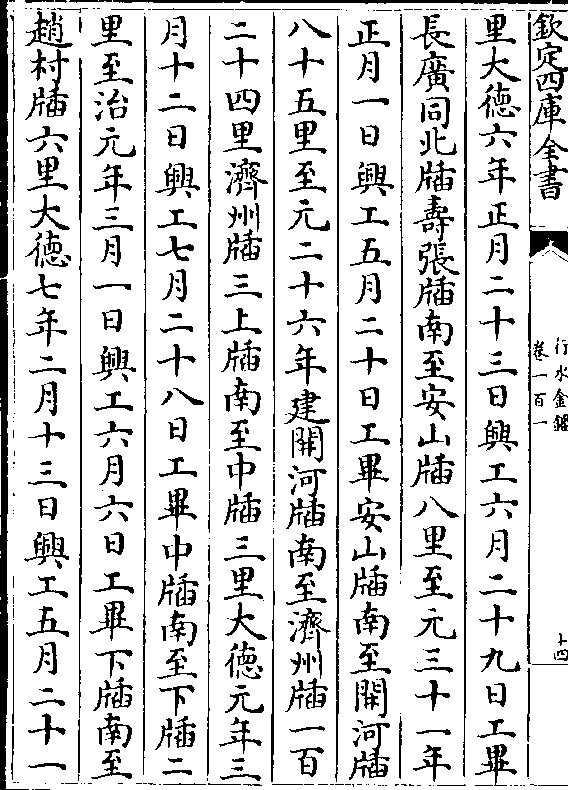 欽定四庫全書
行水金鑑
卷一百一
十四
里大德六年正月二十三日興工六月二十九日工畢
長廣同北牐壽張牐南至安山牐八里至元三十一年
正月一日興工五月二十日工畢安山牐南至開河牐
八十五里至元二十六年建開河牐南至濟州牐一百
二十四里濟州牐三上牐南至中牐三里大德元年三
月十二日興工七月二十八日工畢中牐南至下牐二
里至治元年三月一日興工六月六日工畢下牐南至
趙村牐六里大德七年二月十三日興工五月二十一